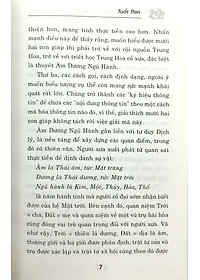 Tuổi Thìn
thiện hơn, mang tính thực tiễn cao hơn. Nhấn
mạnh điều này để thấy rằng, muốn hiểu được mười
hai con giáp thì phải trở về với cội nguồn Trung
Hoa, trở về với triết học Trung Hoa cổ xưa, đặc biệt
là thuyết Âm Dương Ngũ Hành.
Thứ ba, các cách gọi, cách định nghĩa, ngoài ý
muốn biểu tượng cụ thể còn mang sức mạnh khái
quát rất lớn. Chúng trở thành các "ký hiệu thông
tin" để chứa các "nội dung thông tin" theo cách mã
hóa thông tin thời nào đó, vì thế, giải thích mười hai
con giáp không tách rời việc giải mã này.
Âm Dương Ngũ Hành gắn liền với tư duy Dịch
lý, là nền tảng để xây dựng các quan điểm, trong
đó có thiên văn. Người xưa xuất phát từ quan sát
thực tiễn để định danh sự vật:
Âm là Thái âm, tức Mặt trăng
Dương là Thái dương, tức Mặt trời
Ngũ hành là Kim, Mộc, Thủy, Hỏa, Thổ
là năm hành tinh mà người cổ đại sớm nhận biết
được của hệ Mặt Trời. Bên cạnh đó, quan niệm Trời
= cha, Đất = mẹ và quan niệm về một vũ trụ hài hòa
cũng đóng vai trò quan trọng đối với người xưa. Và
như vậy, Trời = thiên là dương, Đất = địa là âm,
thượng giới và hạ giới được phân định, trật tự của vũ
trụ được xác lập và trật tự xã hội của con người cũng
7